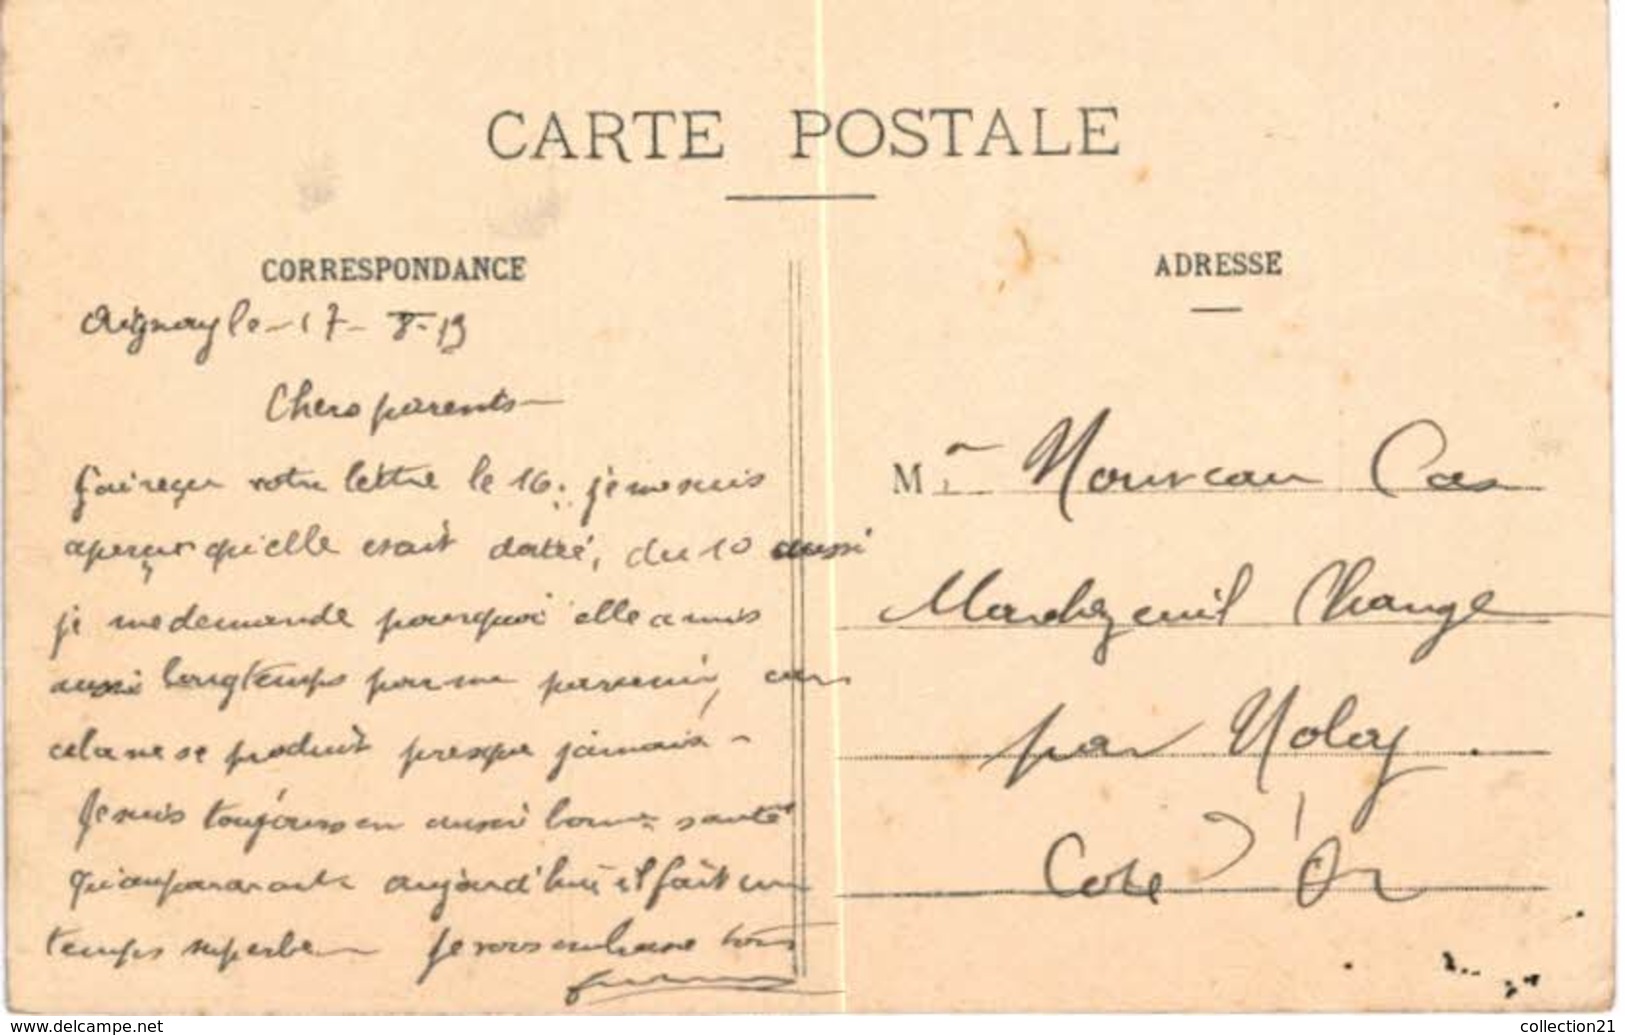 CARTE POSTALE
CORRESPONDANCE
Aignay le - 17 - 8 - 19
Chers parents
J'ai reçu votre lettre le 16. je me suis
aperçu qu'elle était datée, du 10 aussi
je me demande pourquoi elle a mis
aussi longtemps pour me parvenir, car
cela ne se produit presque jamais -
Je suis toujours en aussi bonne santé
qu'auparavant aujourd'hui il fait un
temps superbe Je vous embrasse tous
ADRESSE
Mr Nouveau Cas
Marcheseuil Change
par Nolay.
Cote d'Or
www.delcampe.net
collection21